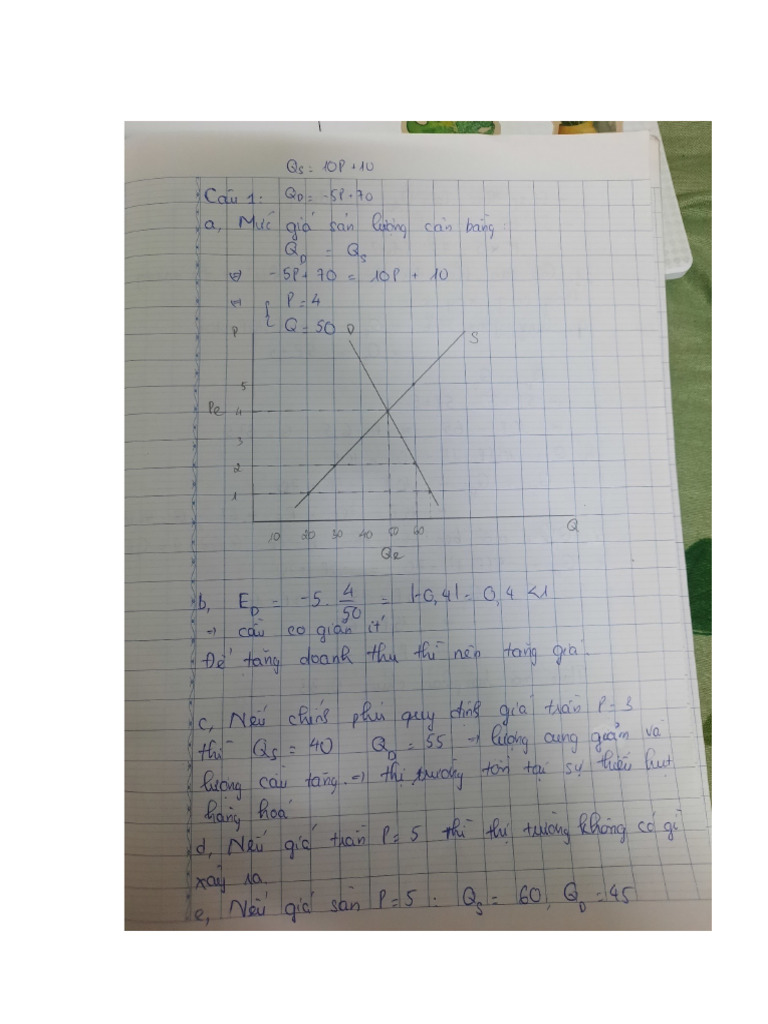 Qs = 10P + 10
Câu 1: QD = -5P+70
a, Mức giá sản lượng cân bằng:
QD = Qs
⇔ -5P+70 = 10P + 10
⇔ { P = 4
Q = 50
P D S
5
Pe 4
3
2
1
10 20 30 40 50 60 Q
Qe
b, ED = -5. 4/50 = |-0,4| = 0,4 <1
→ cầu co giãn ít
Để tăng doanh thu thì nên tăng giá.
c, Nếu chính phủ quy định giá trần P = 3
thì Qs = 40 QD = 55 → lượng cung giảm và
lượng cầu tăng → thị trường tồn tại sự thiếu hụt
hàng hoá
d, Nếu giá trần P = 5 thì thị trường không có gì
xảy ra.
e, Nếu giá sàn P = 5 : Qs = 60, QD = 45